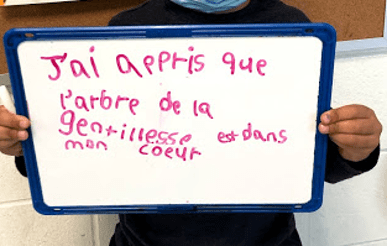 J'ai appris que
l'arbre de la
gentillesse est dans
mon coeur